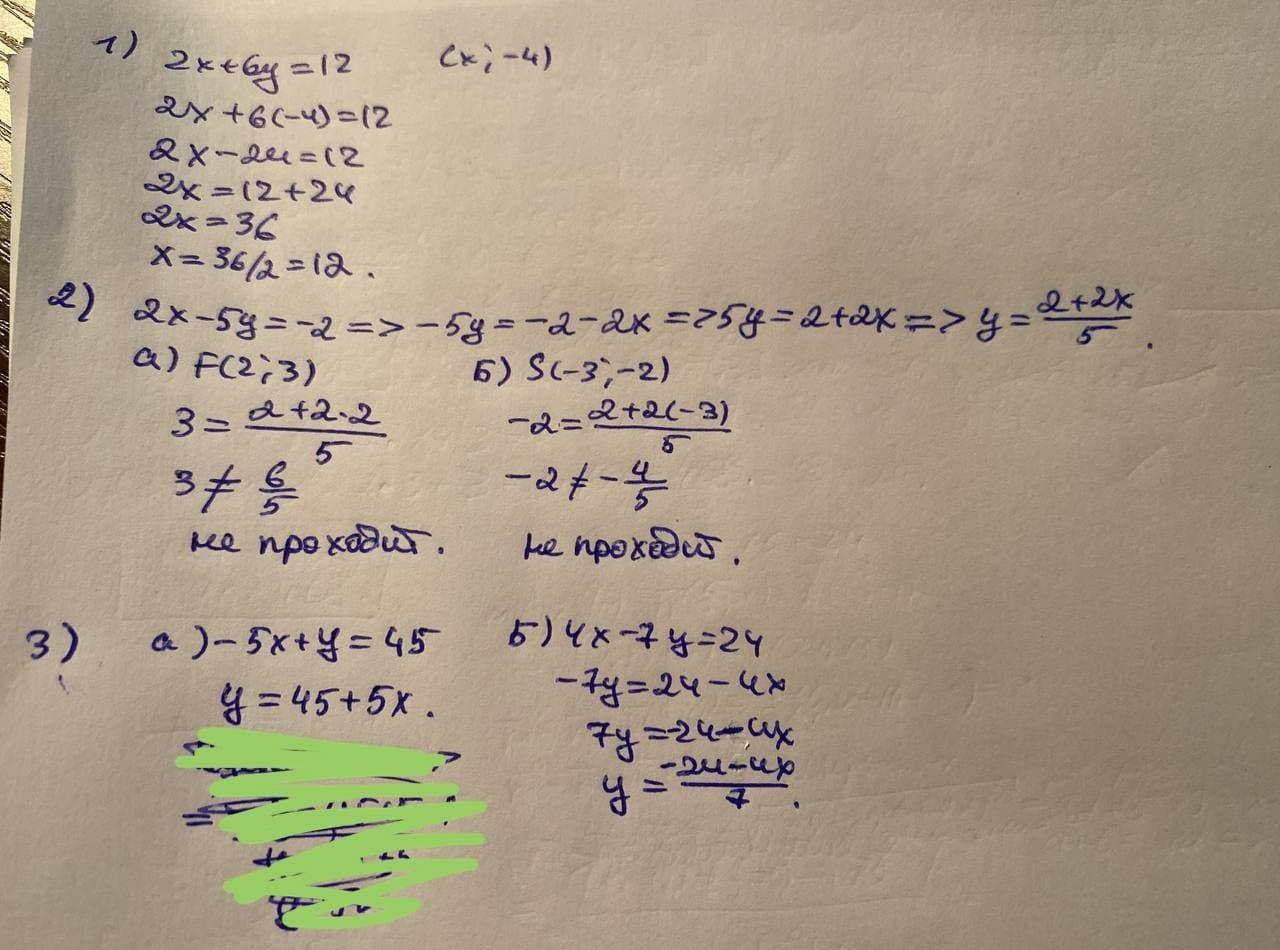 1) 2x+6y=12 (x;-4)
2x+6(-4)=12
2x-24=12
2x=12+24
2x=36
x=36/2=12.
2) 2x-5y=-2=>-5y=-2-2x=>5y=2+2x=>y=\frac{2+2x}{5}.
а) F(2;3) Б) S(-3;-2)
3=\frac{2+2·2}{5} -2=\frac{2+2(-3)}{5}
3≠\frac{6}{5} -2≠-\frac{4}{5}
не проходит. не проходит.
3) а)-5x+y=45 Б)4x-7y=24
y=45+5x. -7y=24-4x
7y=-24-4x
y=\frac{-24-4x}{7}.